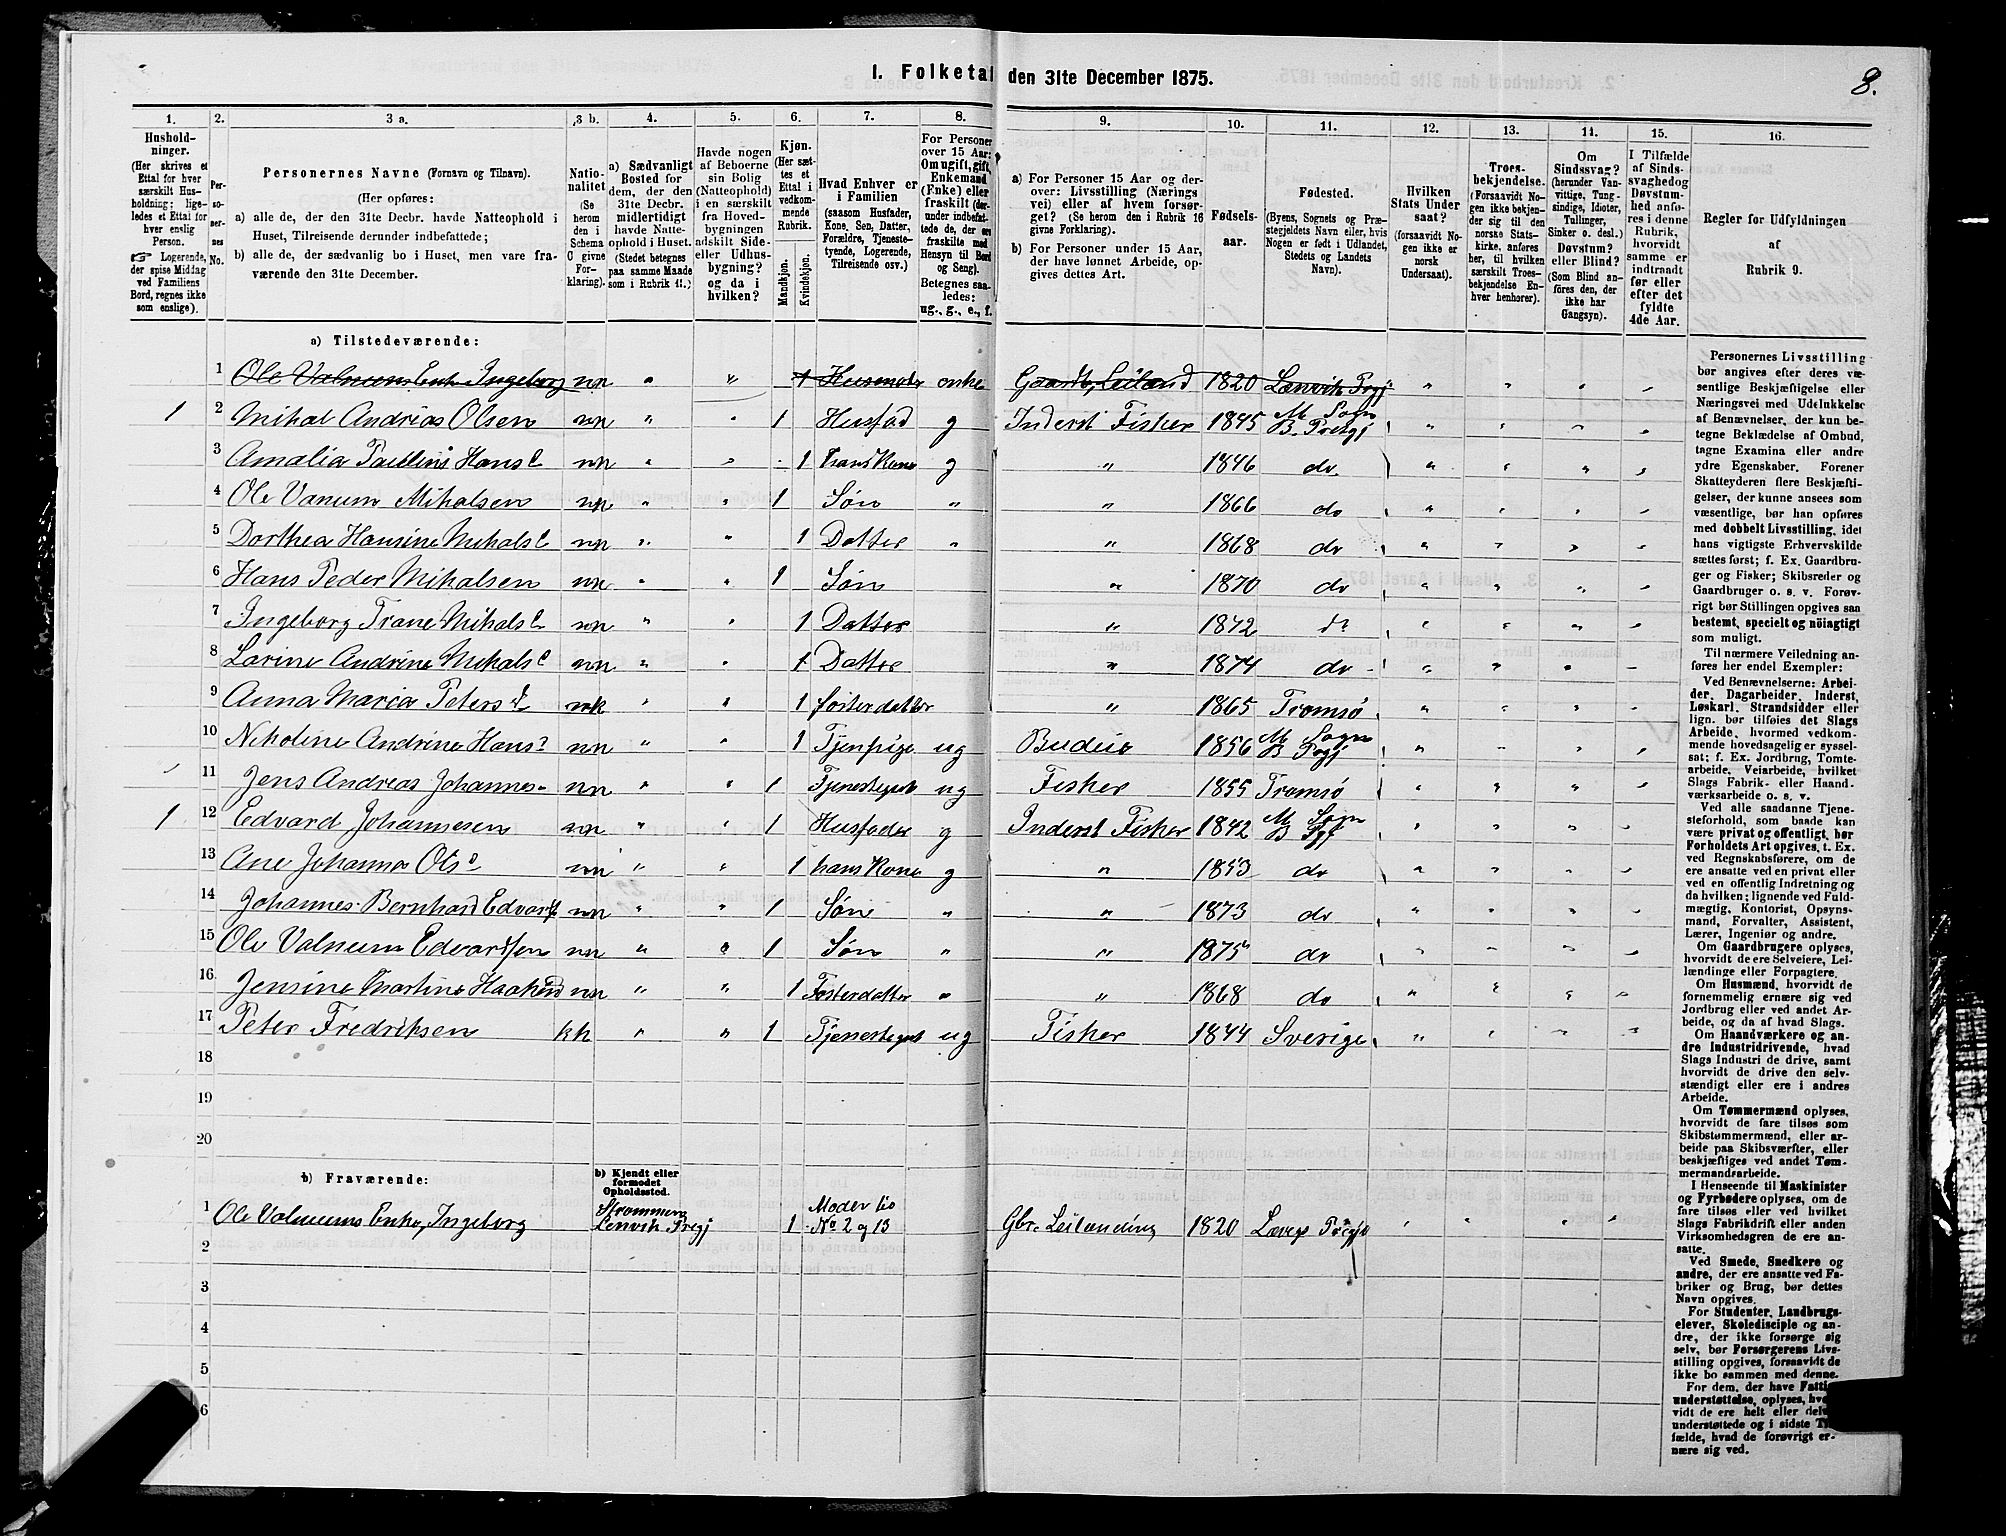 8.
1. Folketal den 31te December 1875.
1. 2. 3 a. 3 b. 4. 5. 6. 7. 8. 9. 10. 11. 12. 13. 14. 15. 16.
Hushold-
ninger.
(Her skrives et
Ettal for hver
særskilt Hus-
holdning; lige-
ledes et Ettal for
hver enslig
Person.
☞ Logerende,
der spise Middag
ved Familiens
Bord, regnes ikke
som enslige).
Per-
so-
ner-
nes
No.
Personernes Navne (Fornavn og Tilnavn).
(Her opføres:
a) alle de, der den 31te Decbr. havde Natteophold i
Huset, Tilreisende derunder indbefattede;
b) alle de, der sædvanlig bo i Huset, men vare fra-
værende den 31te December.
Natio-
nalitet
(Se
herom
den i
Schema
C givne
For-
klaring).
a) Sædvanligt
Bosted for
dem, der den
31te Decbr.
midlertidigt
havde Natte-
ophold i Huset.
(Stedet betegnes
paa samme Maade
som i Rubrik 11.)
Havde nogen
af Beboerne
sin Bolig
(Natteophold)
i en særskilt
fra Hoved-
bygningen
adskilt Side-
eller Udhus-
bygning?
og da i
hvilken?
Kjøn.
(Her sæt-
tes et
Ettal i
vedkom-
mende
Rubrik.
Mandkjøn.
Kvindekjøn.
Hvad Enhver er
i Familien
(saasom Husfader,
Kone, Søn, Datter,
Forældre, Tjeneste-
tyende, Logerende,
Tilreisende osv.)
For Personer
over 15 Aar:
Om ugift, gift,
Enkemand
(Enke) eller
fraskilt (der-
under indbefat-
tede de, der ere
fraskilte med
Hensyn til Bord
og Seng).
Betegnes saa-
ledes:
ug., g., e., f.
a) For Personer 15 Aar og der-
over: Livsstilling (Nærings
vei) eller af hvem forsør-
get? (Se herom den i Rubrik 16
givne Forklaring).
b) For Personer under 15 Aar,
der have lønnet Arbeide, op-
gives dettes Art.
Fødsels-
aar.
Fødested.
(Byens, Sognets og Præ-
stegjeldets Navn eller, hvis
Nogen er født i Udlandet,
Stedets og Landets
Navn).
Hvilken
Stats Under
saat?
(forsaavidt No-
gen ikke er
norsk
Undersaat).
Troes-
bekjendelse.
(Forsaavidt No-
gen ikke bekjen-
der sig til den
norske Stats-
kirke, anføres
her, til hvilken
særskilt Troes-
bekjendelse En-
hver henhorer).
Om
Sindssvag?
(herunder Van-
vittige, Tung-
sindige, Idioter,
Tullinger,
Sinker o. desl.)
Døvstum?
eller Blind?
(Som Blind an-
føres den, der
ikke har
Gangsyn).
I Tilfælde
af Sinds-
svaghed og
Døvstum-
hed anfø-
res i denne
Rubrik,
hvorvidt
samme er
indtraadt
før eller
efter det
fyldte
4de Aar.
Regler for Udfyldningen
af
Rubrik 9.
a) Tilstedeværende:
1 Ole Valnums Enke Ingeborg nn " " 1 Husmoder enke Gaardb, Leiland 1820 Lenvik Prgj
1 2 Mikal Andrias Olsen nn " " 1 Husfad g Inderst Fisker 1845 M. Sogn B. Prestgj
3 Amalia Pauline Hans nn " " 1 hans Kone g " 1846 do
4 Ole Vanum Mikalsen nn " " 1 Søn " " 1866 do
5 Dorthea Hansine Mikals nn " " 1 Datter " " 1868 do
6 Hans Peder Mikalsen nn " " 1 Søn " 1870 do
7 Ingeborg Trane Mikals nn " " 1 Datter " 1872 do
8 Larine Andrine Mikals nn " " 1 Datter " 1874 do
9 Anna Maria Peters nk " " 1 fosterdatter " 1865 Tromsø
10 Nikoline Andrine Hans nn " " 1 Tjenpige ug Budeie 1856 M. Sogn B Prgj
11 Jens Andreas Johannes nn " " 1 Tjenestegut ug Fisker 1855 Tromsø
1 12 Edvard Johannesen nn " " 1 Husfader g Inderst Fisker 1842 M. Sogn B Pgj
13 Ane Johanna Ols nn " " 1 hans Kone g " 1853 do
14 Johannes Bernhard Edvards nn " " 1 Søn " " 1873 do
15 Ole Valnum Edvardsen nn " " 1 Søn " " 1875 do
16 Jensine Martine Haakens nn " " 1 Fosterdatter " " 1868 do
17 Peter Fredriksen kk " " 1 Tjenestegut ug Fisker 1844 Sverige
18
19
20
b) Fraværende:
b) Kjendt eller
formodet
Opholdssted.
1 Ole Valnums Enke, Ingeborg Strommen Lenvik Prgj 1 Moder tio No 2 og 13 Gbr. Leilanding 1820 Prgj
2
3
4
5
6
Personernes Livsstilling
bør angives efter deres væ-
sentlige Beskjæftigelse eller
Næringsvei med Udelukkelse
af Benævnelser, der kun be-
tegne Beklædelse af Ombud,
tagne Examina eller andre
ydre Egenskaber. Forener
Skatteyderen flere Beskjæfti-
gelser, der kunne ansees som
væsentlige, bør han opføres
med dobbelt Livsstilling, idet
hans vigtigste Erhvervskilde
sættes først; f. Ex. Gaardbru-
ger og Fisker; Skibsreder og
Gaardbruger o. s. v. Forøv-
rigt bør Stillingen opgives saa
bestemt, specielt og nöiagtigt
som muligt.
Til nærmere Veiledning an-
føres her endel Exempler:
Ved Benævnelserne: Arbei-
der, Dagarbeider, Inderst,
Løskarl, Strandsidder eller
lign. bør tilføies det Slags
Arbeide, hvormed vedkom-
mende hovedsagelig er syssel-
sat; f. Ex. Jordbrug, Tomte-
arbeide, Veiarbeide, hvilket
Slags Fabrik- eller Haand-
værksarbeide o. s. v.
Ved alle saadanne Tjene-
steforhold, som baade kan
være privat og offentligt, bør
Forholdets Art opgives, t. Ex.
ved Regnskabsførere, om de
ere ansatte ved en privat eller
ved en offentlig Indretning og
da hvilken; lignende ved Fuld-
mægtig, Kontorist, Opsyns-
mand, Forvalter, Assistent,
Lærer, Ingeniør og andre.
Om Gaardbrugere oplyses,
hvorvidt de ere Selveiere, Lei-
lændinge eller Forpagtere.
Om Husmænd, hvorvidt de
fornemmelig ernære sig ved
Jordbrug eller ved andet Ar-
beide, og da af hvad Slags.
Om Haandværkere og an-
dre Industridrivende, hvad
Slags Industri de drive, samt
hvorvidt de drive den selv-
stændigt eller ere i andres
Arbeide.
Om Tømmermænd oplyses,
hvorvidt de fare tilsøs som
Skibstømmermænd, eller ar-
beide paa Skibsværfter, eller
beskjæftiges ved andet Tøm-
mermandsarbeide.
I Henseende til Maskinister
og Fyrbødere oplyses, om de
fare tilsøs eller ved hvilket
Slags Fabrikdrift eller anden
Virksomhedsgren de ere an-
satte.
Ved Smede, Snedkere og
andre, der ere ansatte ved Fa-
briker og Brug, bør dettes
Navn opgives.
For Studenter, Landbrugs-
elever, Skoledisciple og an-
dre, der ikke forsørge sig
selv, bør Forsørgerens Livs-
stilling opgives, forsaavidt de
ikke bo sammen med denne.
For dem, der have Fattig-
understøttelse, oplyses, hvor-
vidt de ere helt eller delvis
understøttede og i sidste Til-
fælde, hvad de forøvrigt er-
nære sig ved.